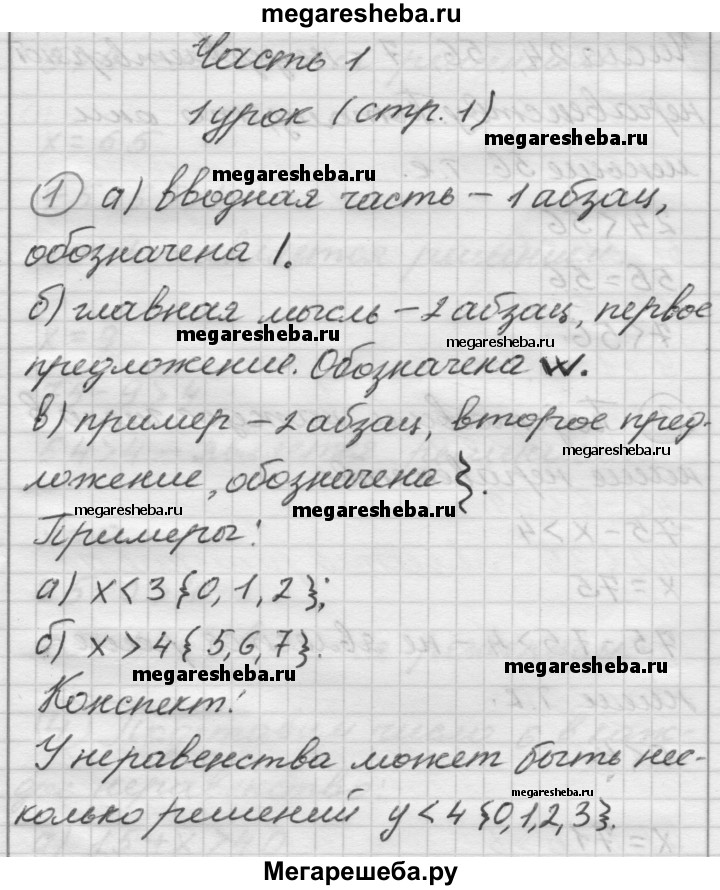 megaresheba.ru
Часть 1
1 урок (стр. 1)
megaresheba.ru
megaresheba.ru
① а) вводная часть – 1 абзац,
обозначена |.
megaresheba.ru
б) главная мысль – 2 абзац, первое
megaresheba.ru
megaresheba.ru
предложение. Обозначена w.
в) пример – 2 абзац, второе пред-
megaresheba.ru
ложение, обозначена }.
megaresheba.ru
megaresheba.ru
Примеры:
а) x < 3 {0, 1, 2};
б) x > 4 { 5, 6, 7}.
megaresheba.ru
megaresheba.ru
Конспект:
У неравенства может быть нес-
megaresheba.ru
колько решений y < 4 {0, 1, 2, 3}.
megaresheba.ru
Мегарешеба.ру